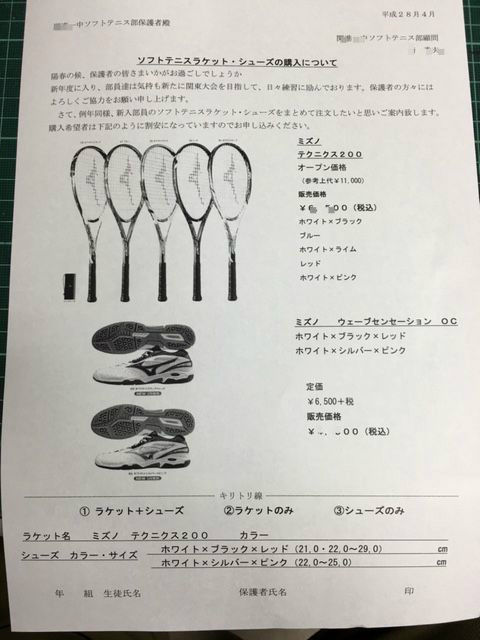 平成２８年４月
一中ソフトテニス部保護者殿
中ソフトテニス部顧問
ソフトテニスラケット・シューズの購入について
陽春の候、保護者の皆さまいかがお過ごしでしょうか
新年度に入り、部員達は気持も新たに関東大会を目指して、日々練習に励んでおります。保護者の方々には
よろしくご協力をお願い申し上げます。
さて、例年同様、新入部員のソフトテニスラケット・シューズをまとめて注文したいと思いご案内致します。
購入希望者は下記のように割安になっていますのでお申し込みください。
ミズノ
テクニクス２００
オープン価格
（参考上代￥11,000）
販売価格
００（税込）
ホワイト×ブラック
ブルー
ホワイト×ライム
レッド
ホワイト×ピンク
ミズノ　ウェーブセンセーション　ＯＣ
ホワイト×ブラック×レッド
ホワイト×シルバー×ピンク
定価
￥6,500＋税
販売価格
００（税込）
キリトリ線
① ラケット＋シューズ　②ラケットのみ　③シューズのみ
ラケット名　ミズノ　テクニクス２００　カラー
シューズ　カラー・サイズ　ホワイト×ブラック×レッド（21.0・22.0～29.0）　cm
ホワイト×シルバー×ピンク（22.0～25.0）　cm
年　組　生徒氏名　保護者氏名　印